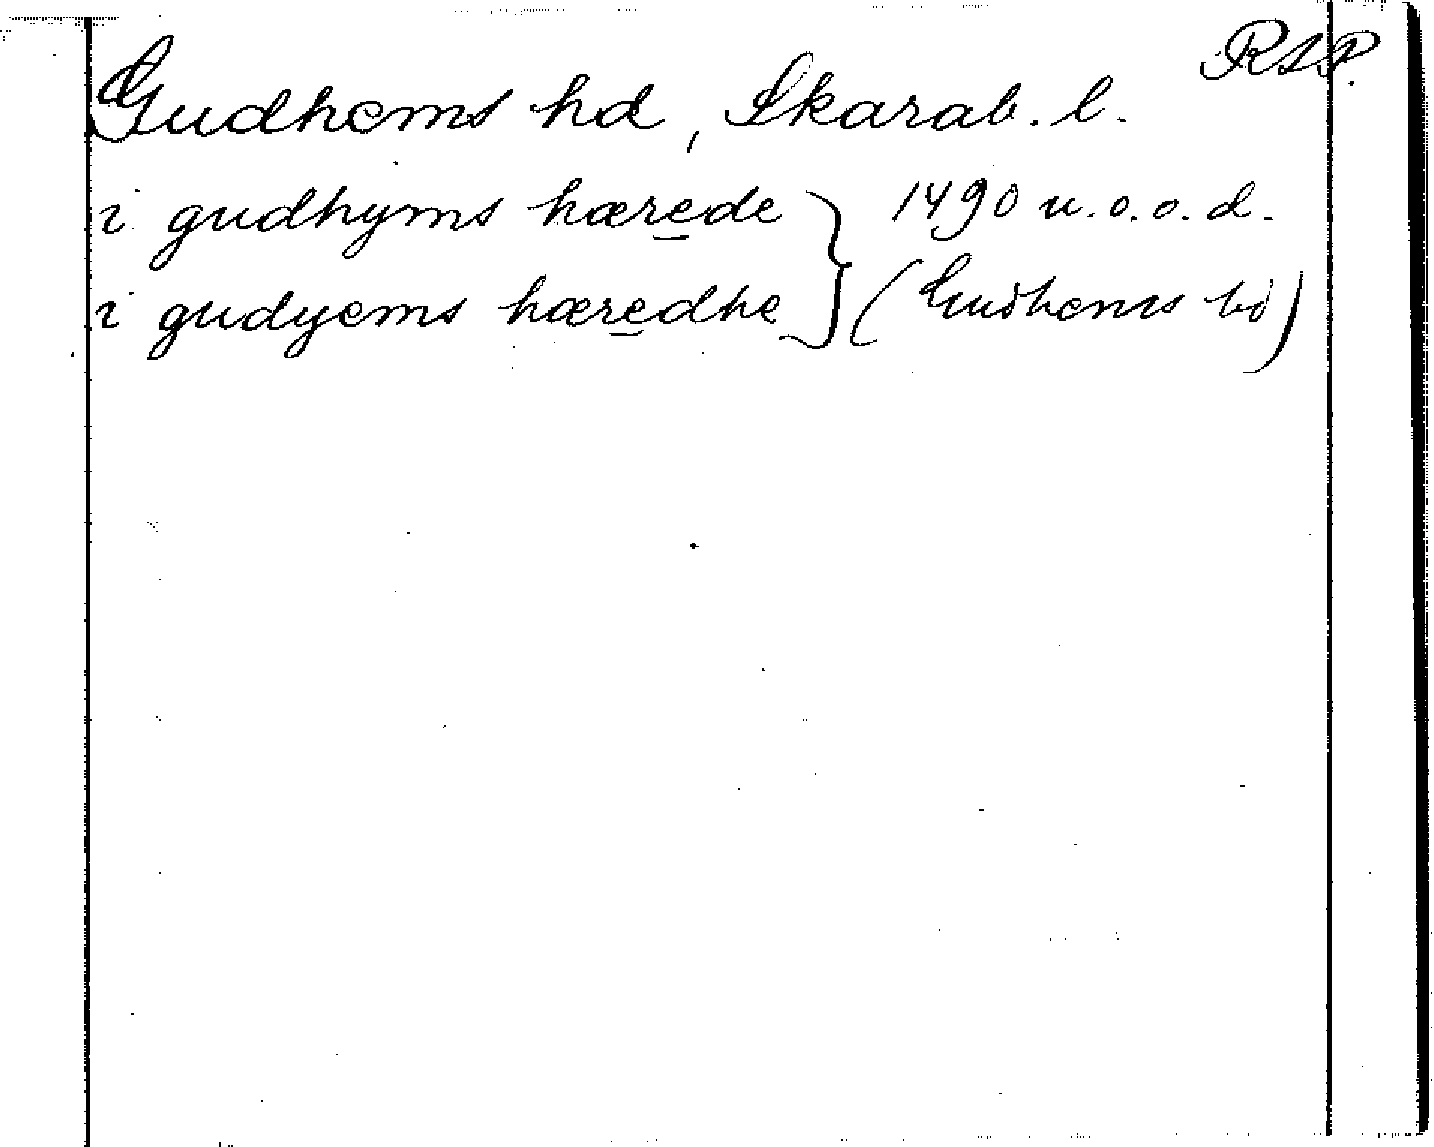 RAP.
Gudhems hd, Skarab. l.
i gudhyms hærede } 1490 u.o.o.d.
i gudyems hæredhe } (Gudhems hd)